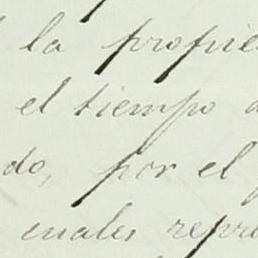 la propie
el tiempo
do, por el
cuales repre